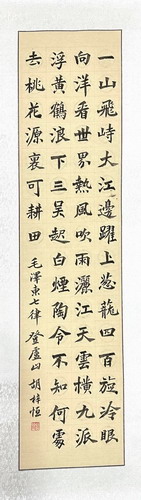 一山飛峙大江邊躍上葱蘢四百旋冷眼
向洋看世界熱風吹雨灑江天雲橫九派
浮黃鶴浪下三吳起白煙陶令不知何處
去桃花源裏可耕田
毛澤東七律登盧山胡梓恒